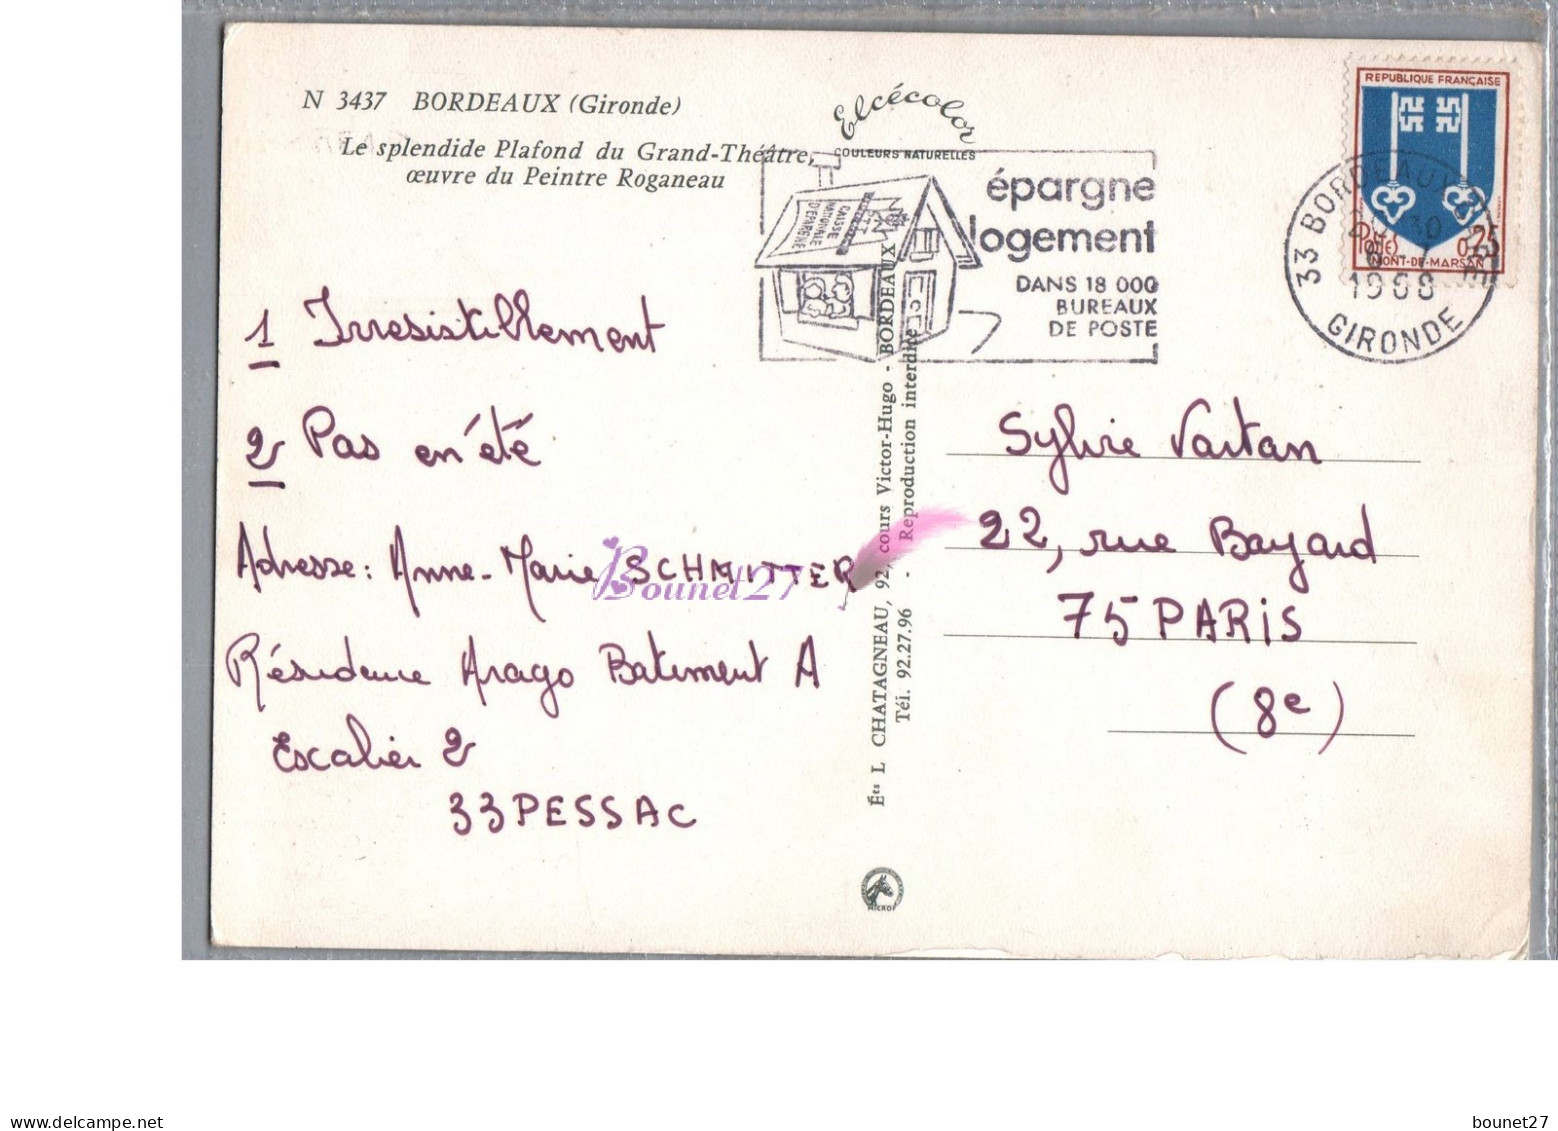 N 3437 BORDEAUX (Gironde)
Le splendide Plafond du Grand-Théâtre,
œuvre du Peintre Roganeau
Elcécolor
COULEURS NATURELLES
épargne
logement
DANS 18 000
BUREAUX
DE POSTE
CAISSE
NATIONALE
D'EPARGNE
REPUBLIQUE FRANÇAISE
Postes 0,25
MONT-DE-MARSAN
33 BORDEAUX
1968
GIRONDE
1 Irresistiblement
2 Pas en été
Adresse: Anne-Marie SCHMITTER
Résidence Arago Batiment A
Escalier 2
33 PESSAC
Bounet27
Éts L CHATAGNEAU, 92, cours Victor-Hugo - BORDEAUX
Tél. 92.27.96 - Reproduction interdite
Sylvie Vartan
22, rue Bayard
75 PARIS
(8e)
MICRO
delcampe.net
bounet27